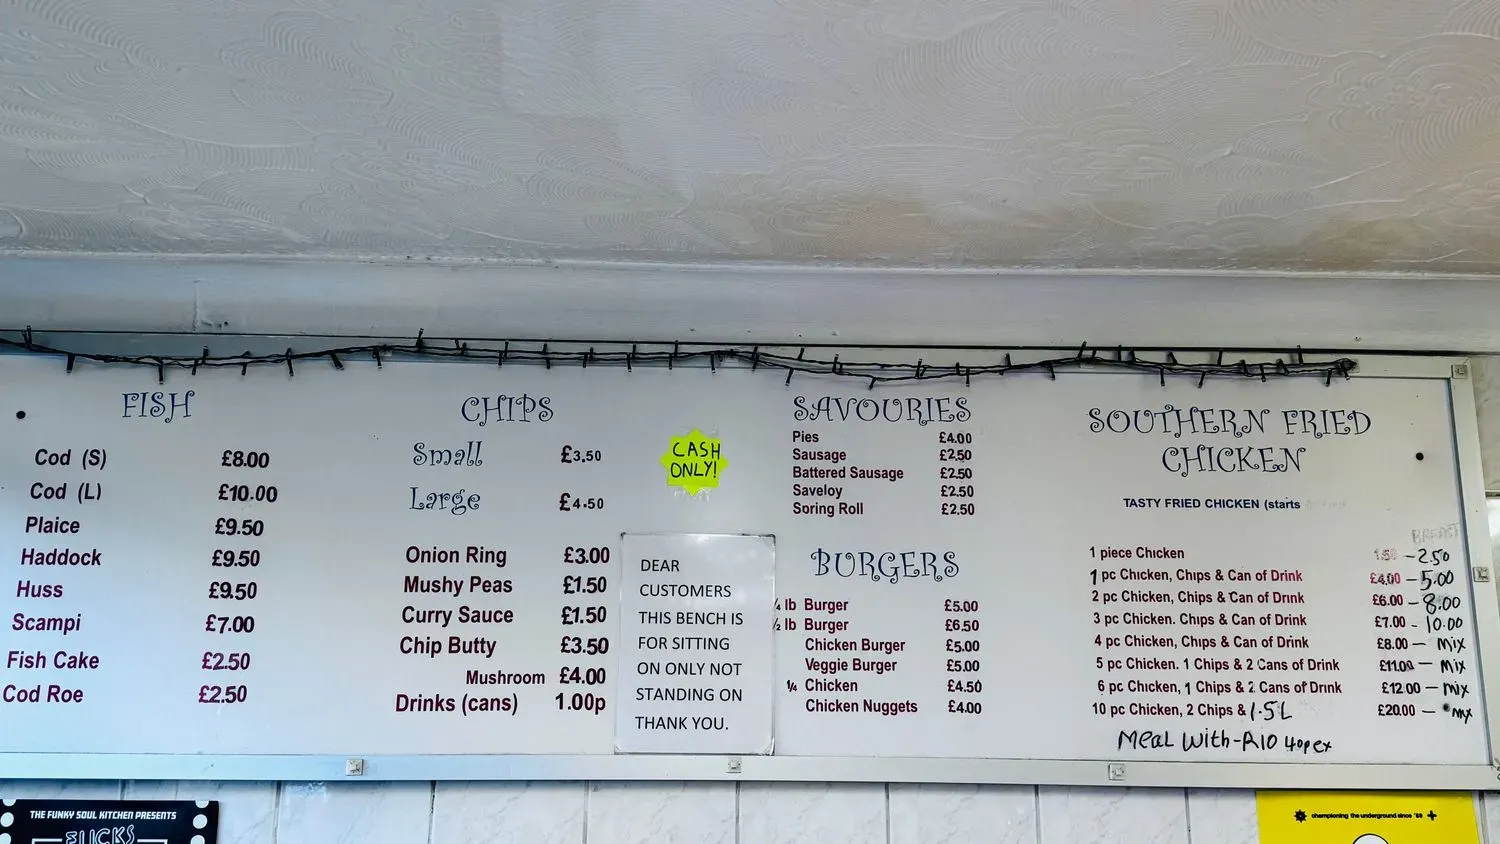 FISH
Cod (S) £8.00
Cod (L) £10.00
Plaice £9.50
Haddock £9.50
Huss £9.50
Scampi £7.00
Fish Cake £2.50
Cod Roe £2.50
CHIPS
Small £3.50
Large £4.50
Onion Ring £3.00
Mushy Peas £1.50
Curry Sauce £1.50
Chip Butty £3.50
Mushroom £4.00
Drinks (cans) 1.00p
CASH
ONLY!
DEAR
CUSTOMERS
THIS BENCH IS
FOR SITTING
ON ONLY NOT
STANDING ON
THANK YOU.
SAVOURIES
Pies £4.00
Sausage £2.50
Battered Sausage £2.50
Saveloy £2.50
Soring Roll £2.50
BURGERS
¼ lb Burger £5.00
½ lb Burger £6.50
Chicken Burger £5.00
Veggie Burger £5.00
¼ Chicken £4.50
Chicken Nuggets £4.00
SOUTHERN FRIED
CHICKEN
TASTY FRIED CHICKEN (starts
BREAST
1 piece Chicken 1.50 - 2.50
1 pc Chicken, Chips & Can of Drink £4.00 - 5.00
2 pc Chicken, Chips & Can of Drink £6.00 - 8.00
3 pc Chicken. Chips & Can of Drink £7.00 - 10.00
4 pc Chicken, Chips & Can of Drink £8.00 - mix
5 pc Chicken. 1 Chips & 2 Cans of Drink £11.00 - mix
6 pc Chicken, 1 Chips & 2 Cans of Drink £12.00 - mix
10 pc Chicken, 2 Chips & 1.5L £20.00 - mx
MEAL WITH-A10 40pex
THE FUNKY SOUL KITCHEN PRESENTS
FLICKS
championing the underground since '89